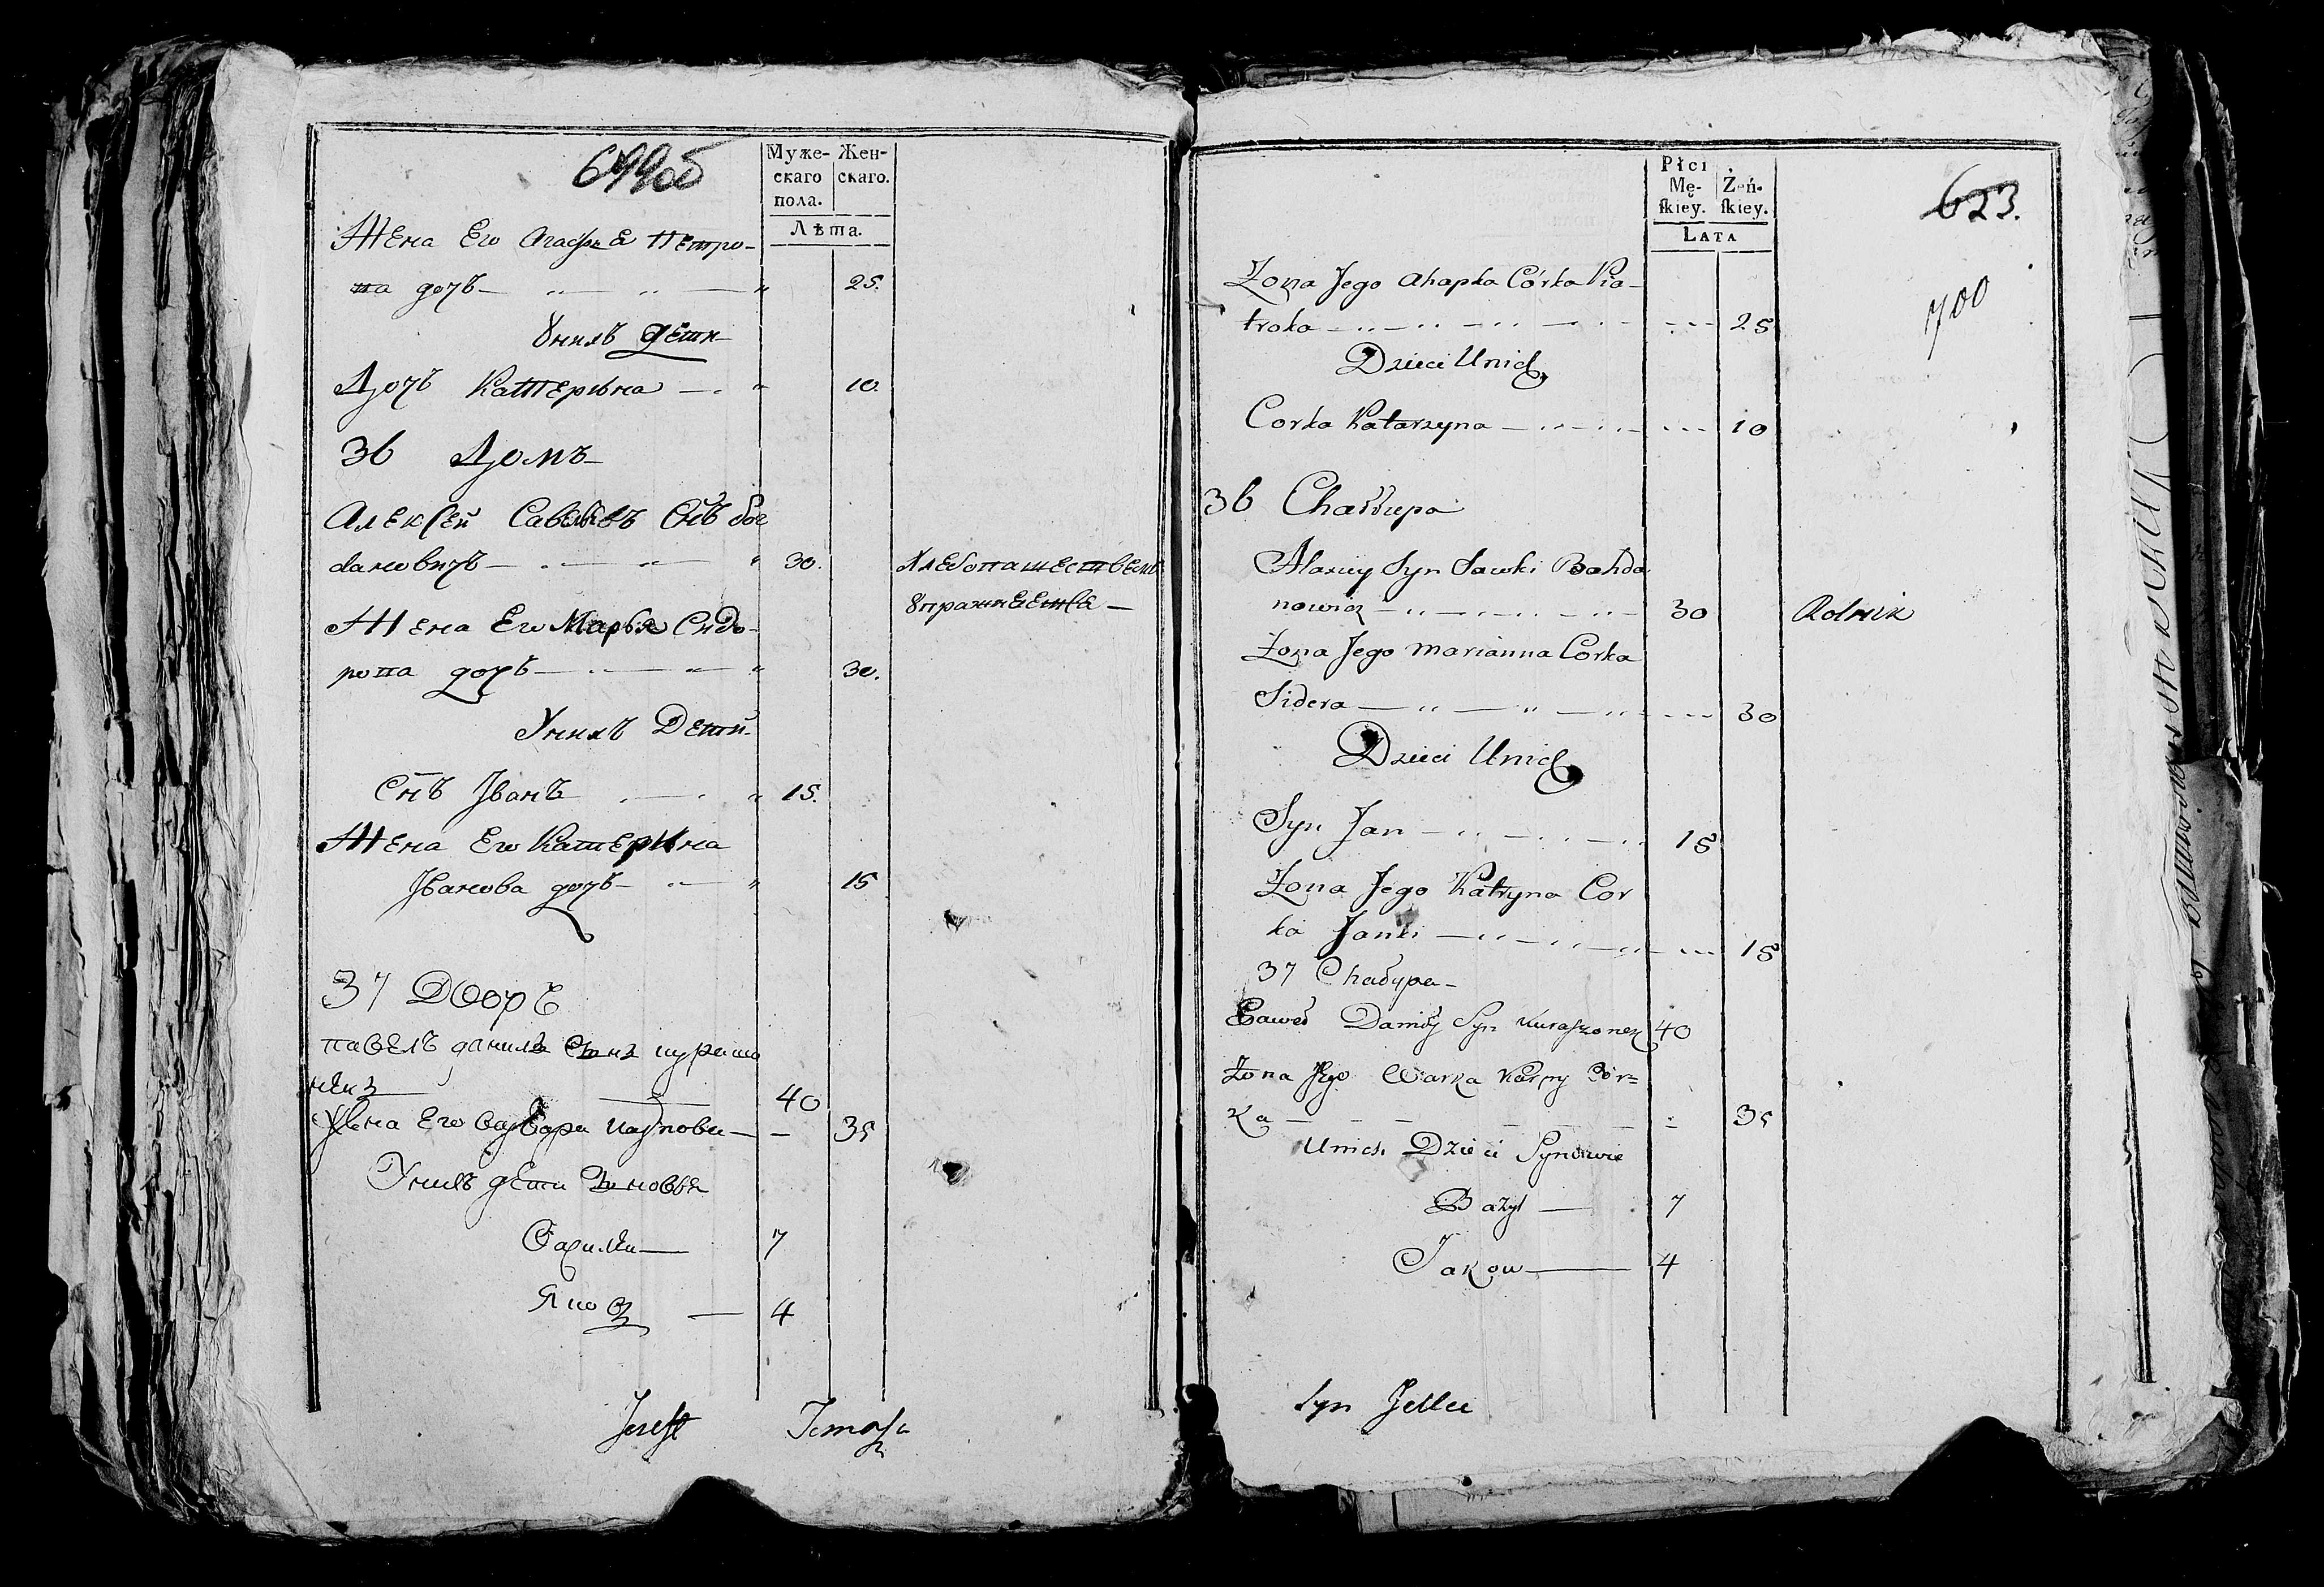 699об
Муже-
скаго
пола.
Жен-
скаго.
Лѣта.
Жена Его Агафія Петро-
па дочь 25.
Унихъ дети
Дочь Катерина 10.
36 Домъ
Алексей Савкинъ Снъ Бог
дановичъ 30. Хлебопашествомъ
Упражняется
Жена Его Марья Сидо-
рова дочь 30.
Унихъ Дети
Снъ Іванъ 15.
Жена Его Катерина
Іванова дочь 15
37 Дворъ
павелъ данила Снъ
40
Жена Его Варвара 35
Унихъ дети Сновья
7
Яков 4
Jerest
Płci
Mę-
ſkiey.
Żeń-
ſkiey.
Lata
623.
700
Żona Jego Ahapka Córka Pia-
troka 25
Dzieci Unich
Corka Katarzyna 10
36 Chałupa
Alaxiey Syn Sawki Bohda
nowicz 30 Rolnik
Żona Jego Marianna Corka
Sidera 30
Dzieci Unich
Syn Jan 15
Żona Jego Katryna Cor
ka Janki 15
37 Chałupa
Paweł Daniły Syn Kuraszonek 40
Żona Jego Warka Karpy Cór=
ka 35
Unich Dzieci Synowie
Bazyl 7
Jakow 4
Syn